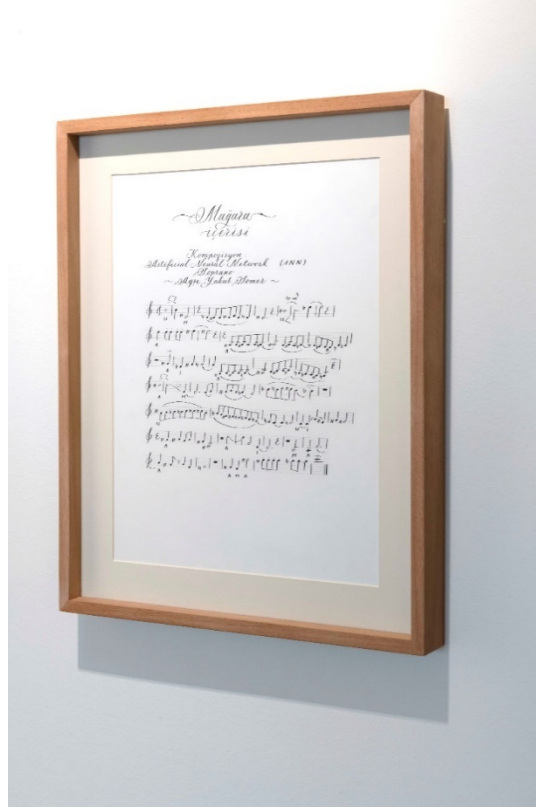 Mağara
içerisi
Kompozisyon
Artificial Neural Network (ANN)
Soprano
~ Ayşe Yakut Somer ~